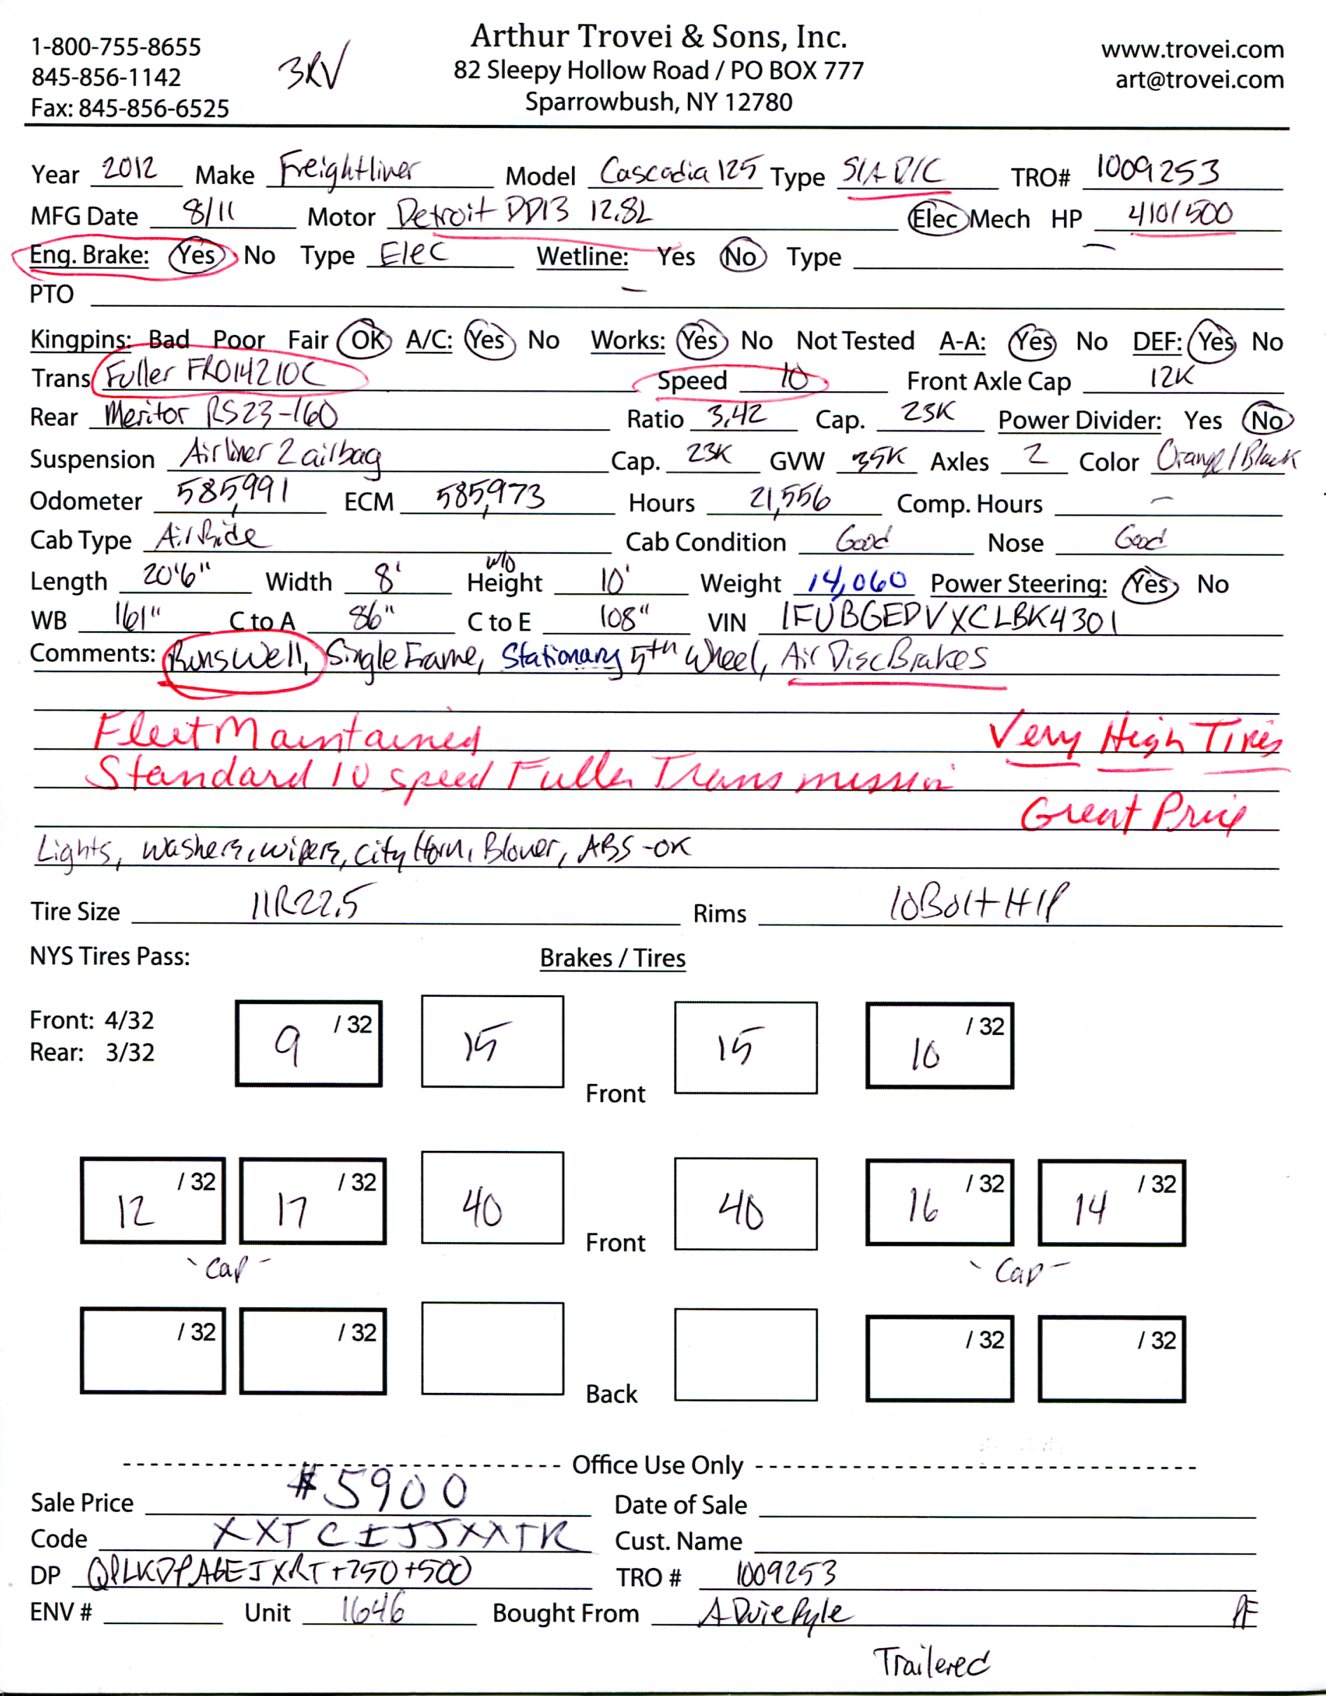 1-800-755-8655
845-856-1142
Fax: 845-856-6525
3RV
Arthur Trovei & Sons, Inc.
82 Sleepy Hollow Road / PO BOX 777
Sparrowbush, NY 12780
www.trovei.com
art@trovei.com
Year 2012 Make Freightliner Model Cascadia 125 Type S/A D/C TRO# 1009253
MFG Date 8/11 Motor Detroit DD13 12.8L Elec Mech HP 410/500
Eng. Brake: Yes No Type Elec Wetline: Yes No Type
PTO
Kingpins: Bad Poor Fair OK A/C: Yes No Works: Yes No Not Tested A-A: Yes No DEF: Yes No
Trans Fuller FRO14210C Speed 10 Front Axle Cap 12K
Rear Meritor RS23-160 Ratio 3.42 Cap. 23K Power Divider: Yes No
Suspension Airliner 2 airbag Cap. 23K GVW 35K Axles 2 Color Orange/Black
Odometer 585,991 ECM 585,973 Hours 21,556 Comp. Hours —
Cab Type Air Ride Cab Condition Good Nose Good
Length 20'6" Width 8' w/o Height 10' Weight 14,060 Power Steering: Yes No
WB 161" C to A 86" C to E 108" VIN 1FUBGEDVXCLBK4301
Comments: Runs Well, Single Frame, Stationary 5th Wheel, Air Disc Brakes
Fleet Maintained Very High Tires
Standard 10 speed Fuller Transmission
Great Price
Lights, washers, wipers, City Horn, Blower, ABS -OK
Tire Size 11R22.5 Rims 10 Bolt H/P
NYS Tires Pass: Brakes / Tires
Front: 4/32
Rear: 3/32
9 /32 15 Front 15 10 /32
12 /32 17 /32 40 Front 40 16 /32 14 /32
- Cap - - Cap -
/32 /32 Back /32 /32
Office Use Only
Sale Price $5900 Date of Sale
Code XXTCIJJXXTR Cust. Name
DP QPLKDPAGEJXRT+750+500 TRO # 1009253
ENV # Unit 1646 Bought From
Trailered